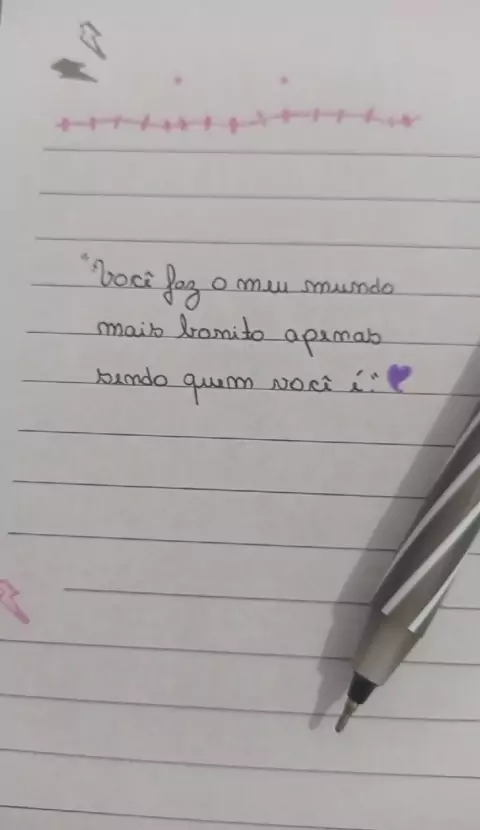 "Você faz o meu mundo
mais bonito apenas
sendo quem você é." 💜